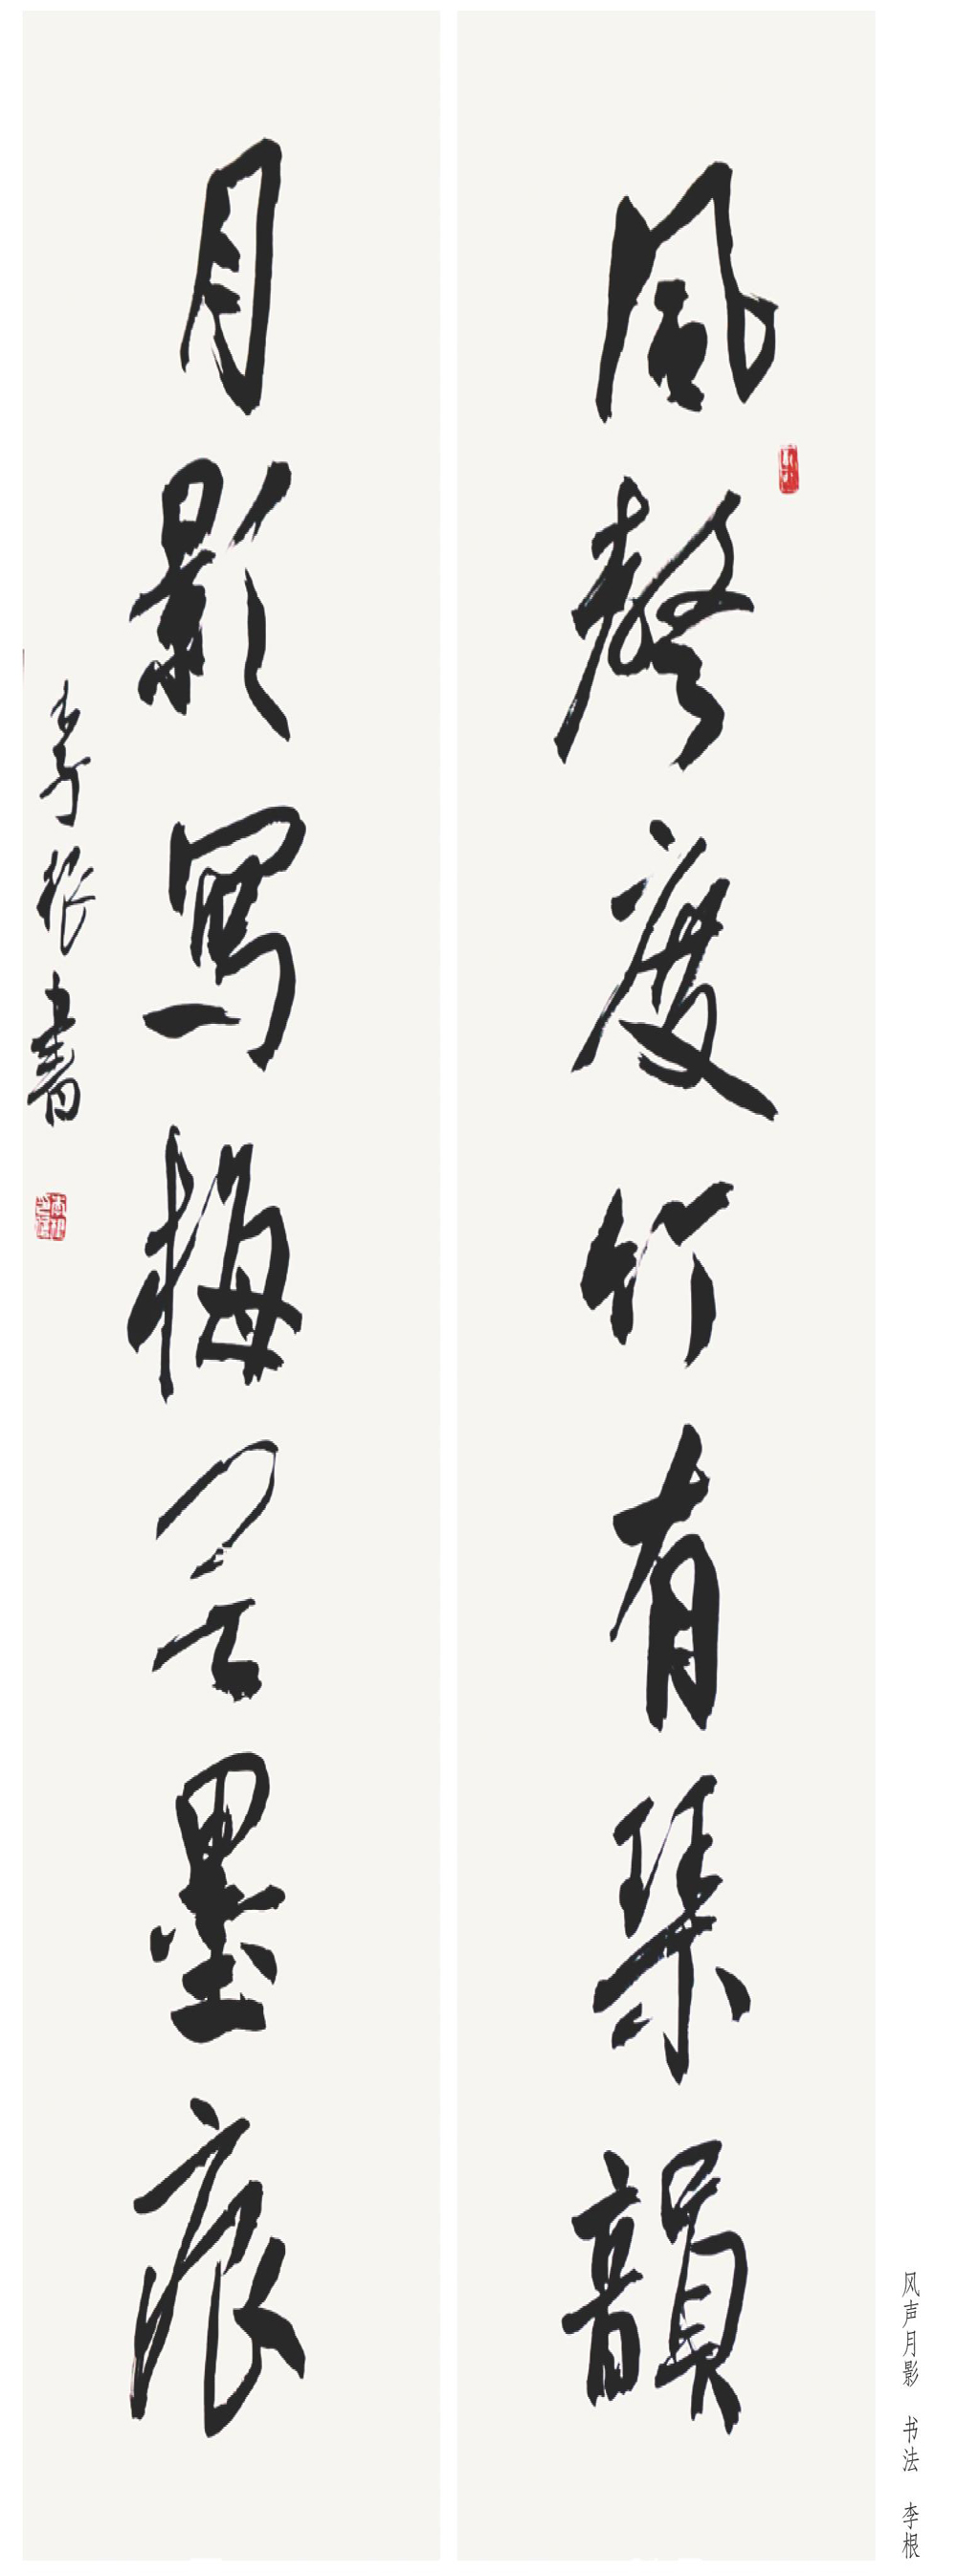 風聲度竹有琴韻
月影寫梅無墨痕
李根書
风声月影 书法 李根